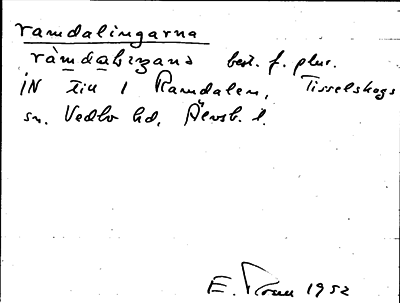 ramdalingarna
ràmdaliŋana best. f. plur.
IN till 1 Ramdalen, Tisselskogs
sn. Vedbo hd, Älvsb. l.
E. 1952